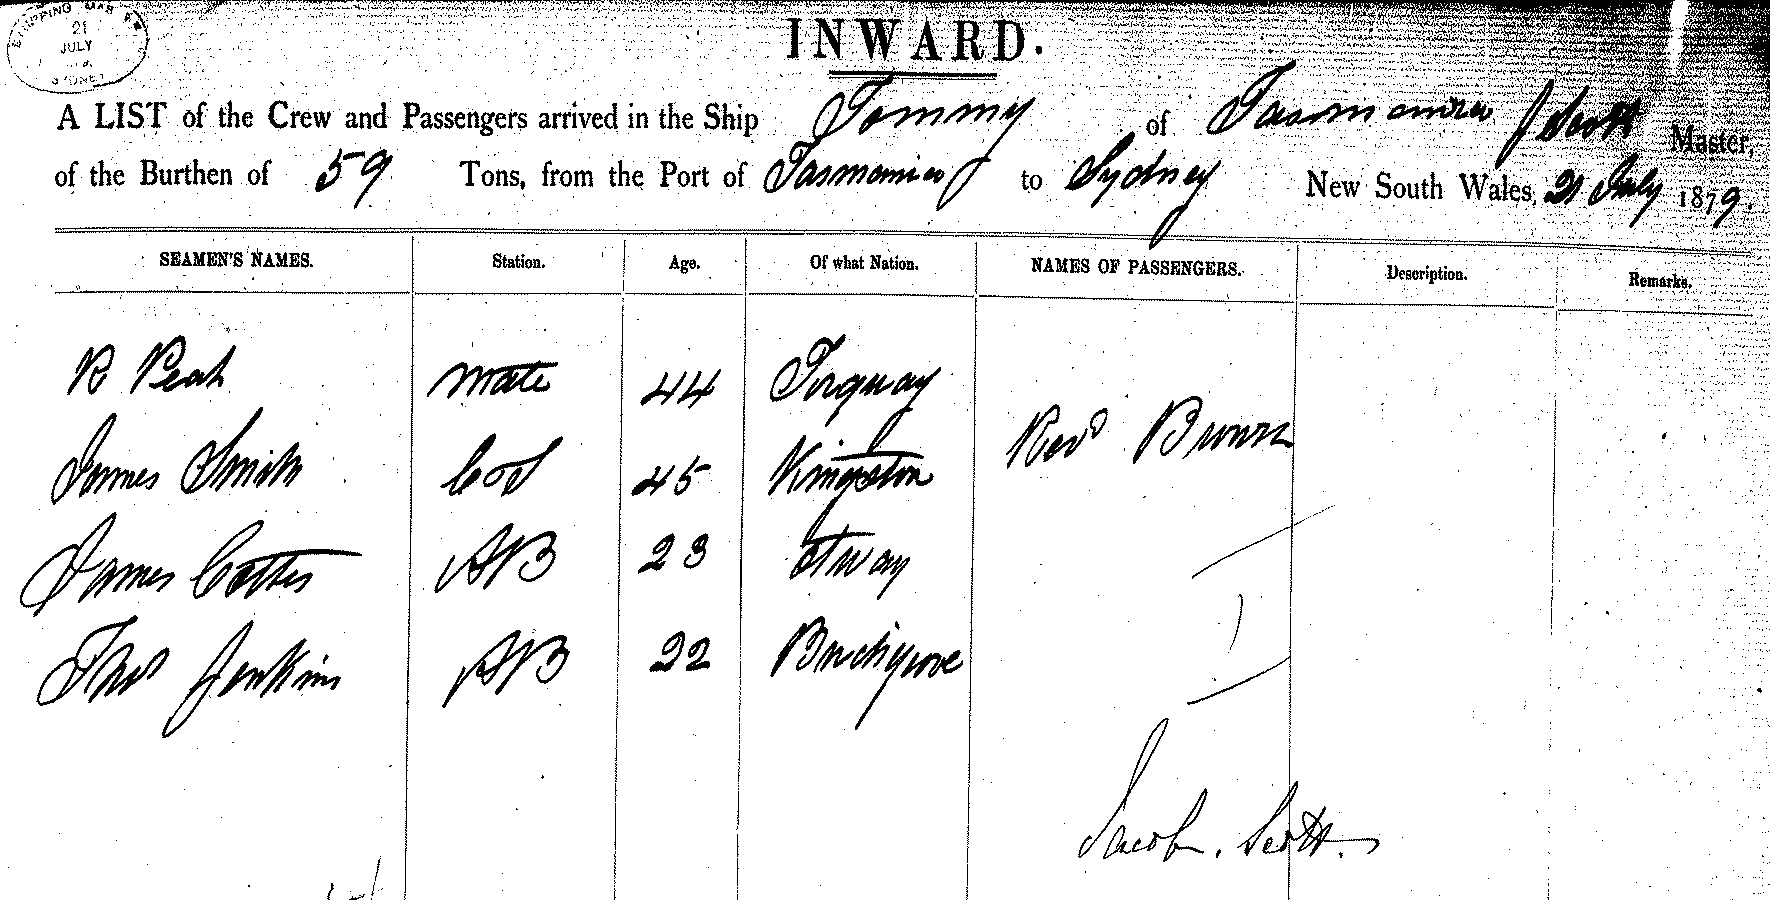 SHIPPING MAS
21
JULY
SYDNEY
INWARD.
A LIST of the Crew and Passengers arrived in the Ship Tommy of Tasmania J Scott Master,
of the Burthen of 59 Tons, from the Port of Tasmania to Sydney New South Wales, 21 July 1879.
SEAMEN'S NAMES. Station. Age. Of what Nation. NAMES OF PASSENGERS. Description. Remarks.
R Peak mate 44 Torquay
Revd Brown
James Smith 45 Kingston
James AB 23
Thos Jenkins AB 22
1
Jacob. Scott.